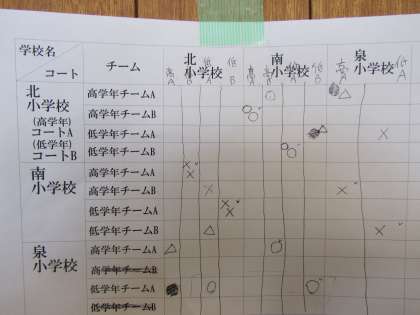 学校名
コート
チーム
北
小学校
南
小学校
泉
小学校
高A
高B
低A
低B
高A
高B
低A
低B
高A
低A
北
小学校
(高学年)
コートA
(低学年)
コートB
高学年チームA
高学年チームB
低学年チームA
低学年チームB
南
小学校
高学年チームA
高学年チームB
低学年チームA
低学年チームB
泉
小学校
高学年チームA
高学年チームB
低学年チームA
低学年チームB